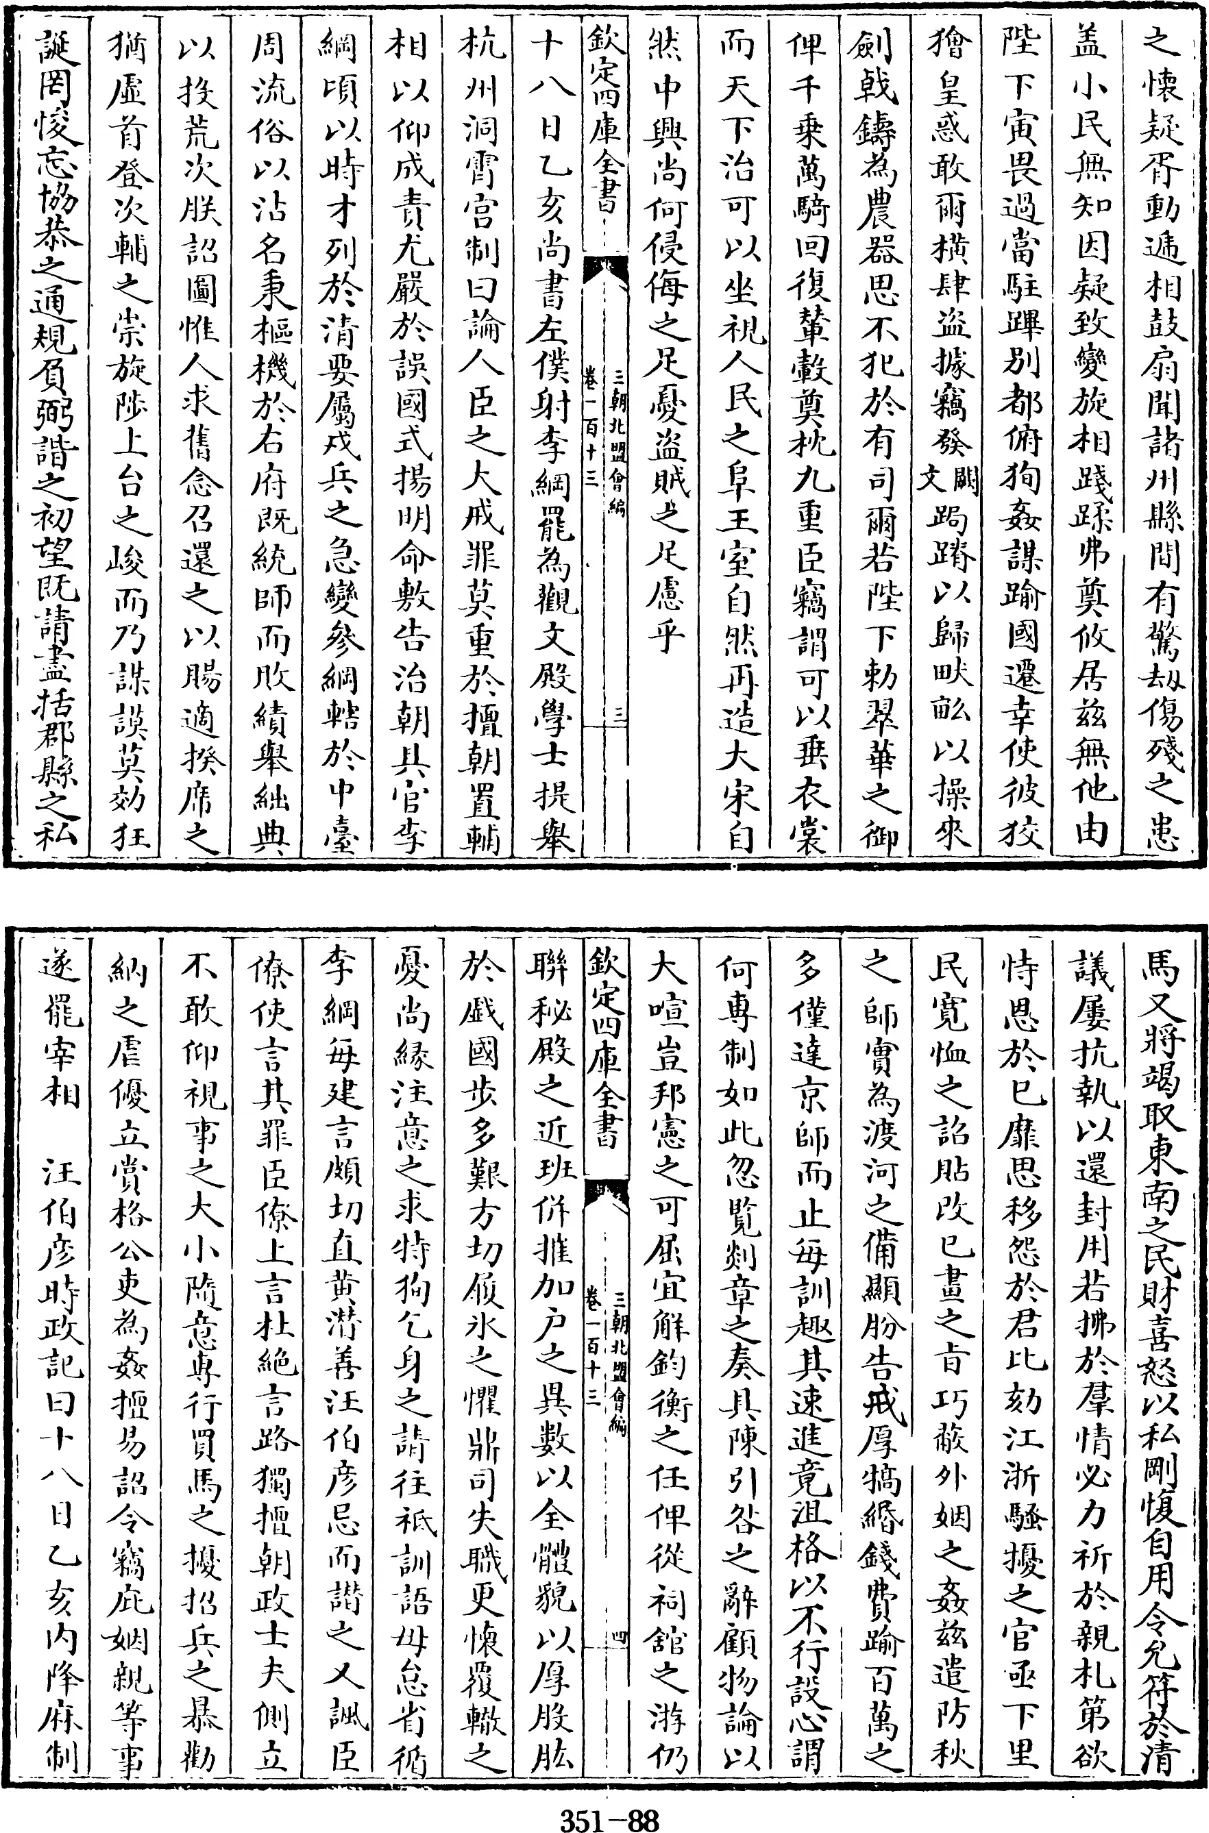 之懷疑胥動遞相鼓扇聞諸州縣間有驚刼傷殘之患
盖小民無知因疑致變旋相踐蹂弗奠攸居兹無他由
陛下寅畏過當駐蹕别都俯狥姦謀踰國遷幸使彼狡
獪皇惑敢爾横肆盜據竊發闕文跼蹐以歸畎畝以操來
劍戟鑄為農器思不犯於有司爾若陛下勅翠華之御
俾千乗萬騎回復輦轂奠枕九重臣竊謂可以垂衣裳
而天下治可以坐視人民之阜王室自然再造大宋自
然中興尚何侵侮之足憂盜賊之足慮乎
欽定四庫全書
三朝北盟會編
卷一百十三
三
十八日乙亥尚書左僕射李綱罷為觀文殿學士提舉
杭州洞霄宫制曰論人臣之大戒罪莫重於擅朝置輔
相以仰成責尤嚴於誤國式揚明命敷告治朝具官李
綱頃以時才列於清要屬戎兵之急變參綱轄於中臺
周流俗以沽名秉樞機於右府既統師而敗績舉絀典
以投荒次朕詔圖惟人求舊念召還之以賜適揆席之
猶虛首登次輔之崇旋陟上台之峻而乃謀謨莫効狂
誕罔悛忘協恭之通規負弼諧之初望既請盡括郡縣之私
馬又將竭取東南之民財喜怒以私剛愎自用令允符於清
議屢抗執以還封用若拂於羣情必力祈於親札第欲
恃恩於已靡思移怨於君比劾江浙騷擾之官亟下里
民寛恤之詔貼改已畫之㫖巧蔽外姻之姦兹遣防秋
之師實為渡河之備顯肦告戒厚犒緡錢費踰百萬之
多僅達京師而止每訓趣其速進竟沮格以不行設心謂
何專制如此忽覧剡章之奏具陳引咎之辭顧物論以
大喧豈邦憲之可屈宜解鈞衡之任俾從祠館之游仍
欽定四庫全書
三朝北盟會編
卷一百十三
四
聯秘殿之近班併推加户之異數以全體貌以厚股肱
於戲國步多艱方切履氷之懼鼎司失職更懷覆轍之
憂尚緣注意之求特狥乞身之請往祇訓語毋怠省循
李綱每建言頗切直黄潜善汪伯彦忌而譖之又諷臣
僚使言其罪臣僚上言杜絶言路獨擅朝政士夫側立
不敢仰視事之大小隨意專行買馬之擾招兵之暴勸
納之虐優立賞格公吏為姦擅易詔令竊庇姻親等事
遂罷宰相　汪伯彦時政記曰十八日乙亥内降麻制
351-88